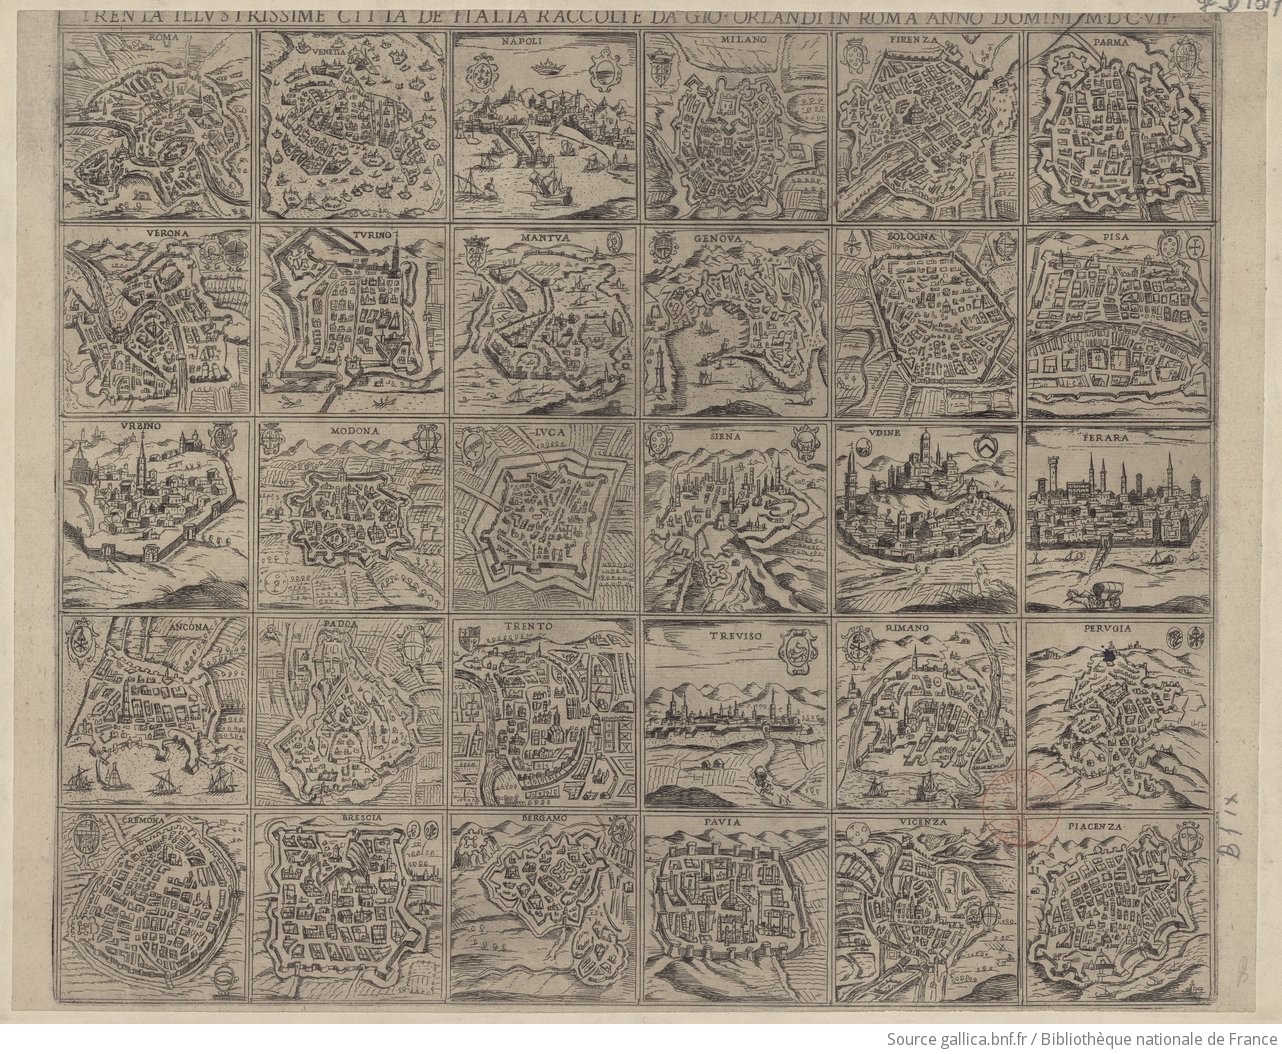 TRENTA ILLVSTRISSIME CITTA DE ITALIA RACCOLTE DA GIO. ORLANDI IN ROMA ANNO DOMINI M.D.C.VII
ROMA
VENETIA
NAPOLI
MILANO
FIRENZA
PARMA
VERONA
TVRINO
MANTVA
GENOVA
BOLOGNA
PISA
VRBINO
MODONA
LVCA
SIENA
VDINE
FERARA
ANCONA
PADOA
TRENTO
TREVISO
RIMANO
PERVGIA
CREMONA
BRESCIA
BERGAMO
PAVIA
VICENZA
PIACENZA
Source gallica.bnf.fr / Bibliothèque nationale de France